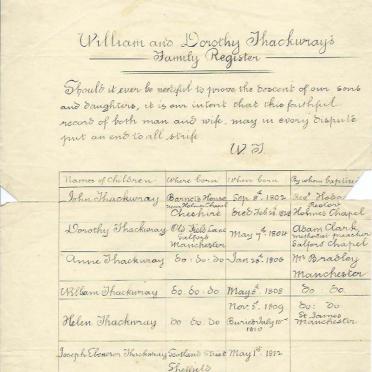 William and Dorothy Thackwray's
Family Register
Should it ever be needful to prove the descent of our sons
and daughters, it is our intent that this faithful
record of both man and wife, may in every dispute
put an end to all strife
W T
Names of Children Where born When born By whom baptised
John Thackwray Barnets House Sep 8th 1802 Revd
near Holmes Chapel Rector
Cheshire died Feb 28 Holmes Chapel
Dorothy Thackwray Old Field Lane May 7th 1804 Adam Clark
Salford methodist preacher
Manchester Salford Chapel
Anne Thackwray do: do: do Jan 28th 1806 Mr Bradley
Manchester
William Thackwray do. do. do May 1808 do do
Nov 1809 do: do
Helen Thackwray do. do. do Buried July 10th St James
1810 Manchester
Joseph Ebenezer Thackwray Scotland Street May 1st 1812
Sheffield